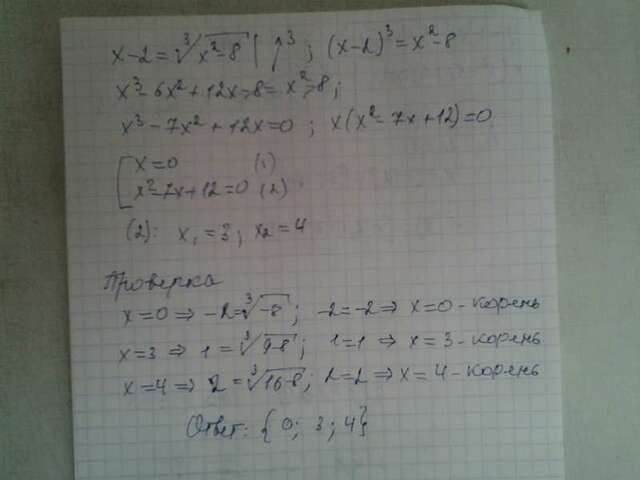 x-2 = ∛(x²-8) | ↑³ ; (x-2)³ = x²-8
x³-6x²+12x-8 = x²-8;
x³-7x²+12x=0 ; x(x²-7x+12)=0
[ x=0 (1)
x²-7x+12=0 (2)
(2): x₁=3; x₂=4
Проверка
x=0 ⇒ -2=∛(-8); -2=-2 ⇒ x=0 - корень
x=3 ⇒ 1=∛(9-8); 1=1 ⇒ x=3 - корень
x=4 ⇒ 2=∛(16-8); 2=2 ⇒ x=4 - корень
Ответ: {0; 3; 4}